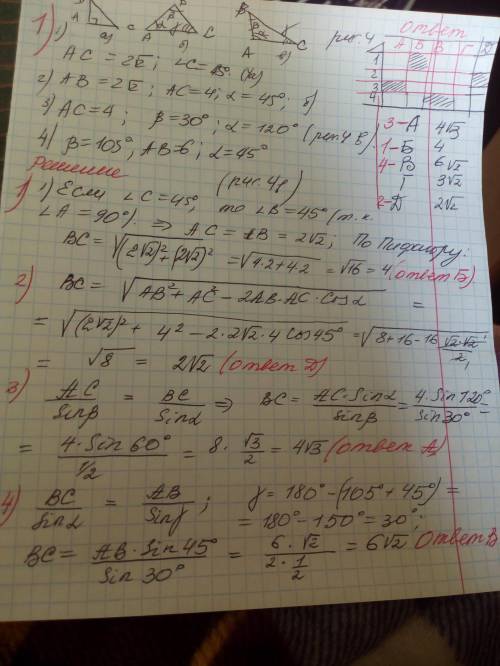 1) 1) A C а) A β α C б) B β α A C в) рис. 4 Ответ
AC = 2√2; ∠C = 45° (а)
2) AB = 2√2; AC = 4; α = 45°; б)
3) AC = 4; β = 30°; α = 120° (рис. 4 в)
4) β = 105°, AB = 6; α = 45°
(рис. 4г)
А Б В Г Д
1
2
3
4
3 – А 4√3
1 – Б 4
4 – В 6√2
Г 3√2
2 – Д 2√2
Решение
1) 1) Если ∠C = 45°, то ∠B = 45° (т.к.
∠A = 90°) ⇒ AC = AB = 2√2; По Пифагору:
BC = √((2√2)² + (2√2)²) = √(4·2+4·2) = √16 = 4 (ответ Б)
2) BC = √(AB² + AC² – 2AB·AC·Cosα) =
= √((2√2)² + 4² – 2·2√2·4 Cos 45°) = √(8+16–16 √2·√2/2)
= √8 = 2√2 (ответ Д)
3) AC/Sinβ = BC/Sinα ⇒ BC = AC·Sinα/Sinβ = 4·Sin 120°/Sin 30° =
= 4·Sin 60°/½ = 8·√3/2 = 4√3 (ответ А)
4) BC/Sinα = AB/Sinγ; γ = 180° – (105° + 45°) =
= 180° – 150° = 30°;
BC = AB·Sin 45°/Sin 30° = 6·√2/2·½ = 6√2 Ответ В